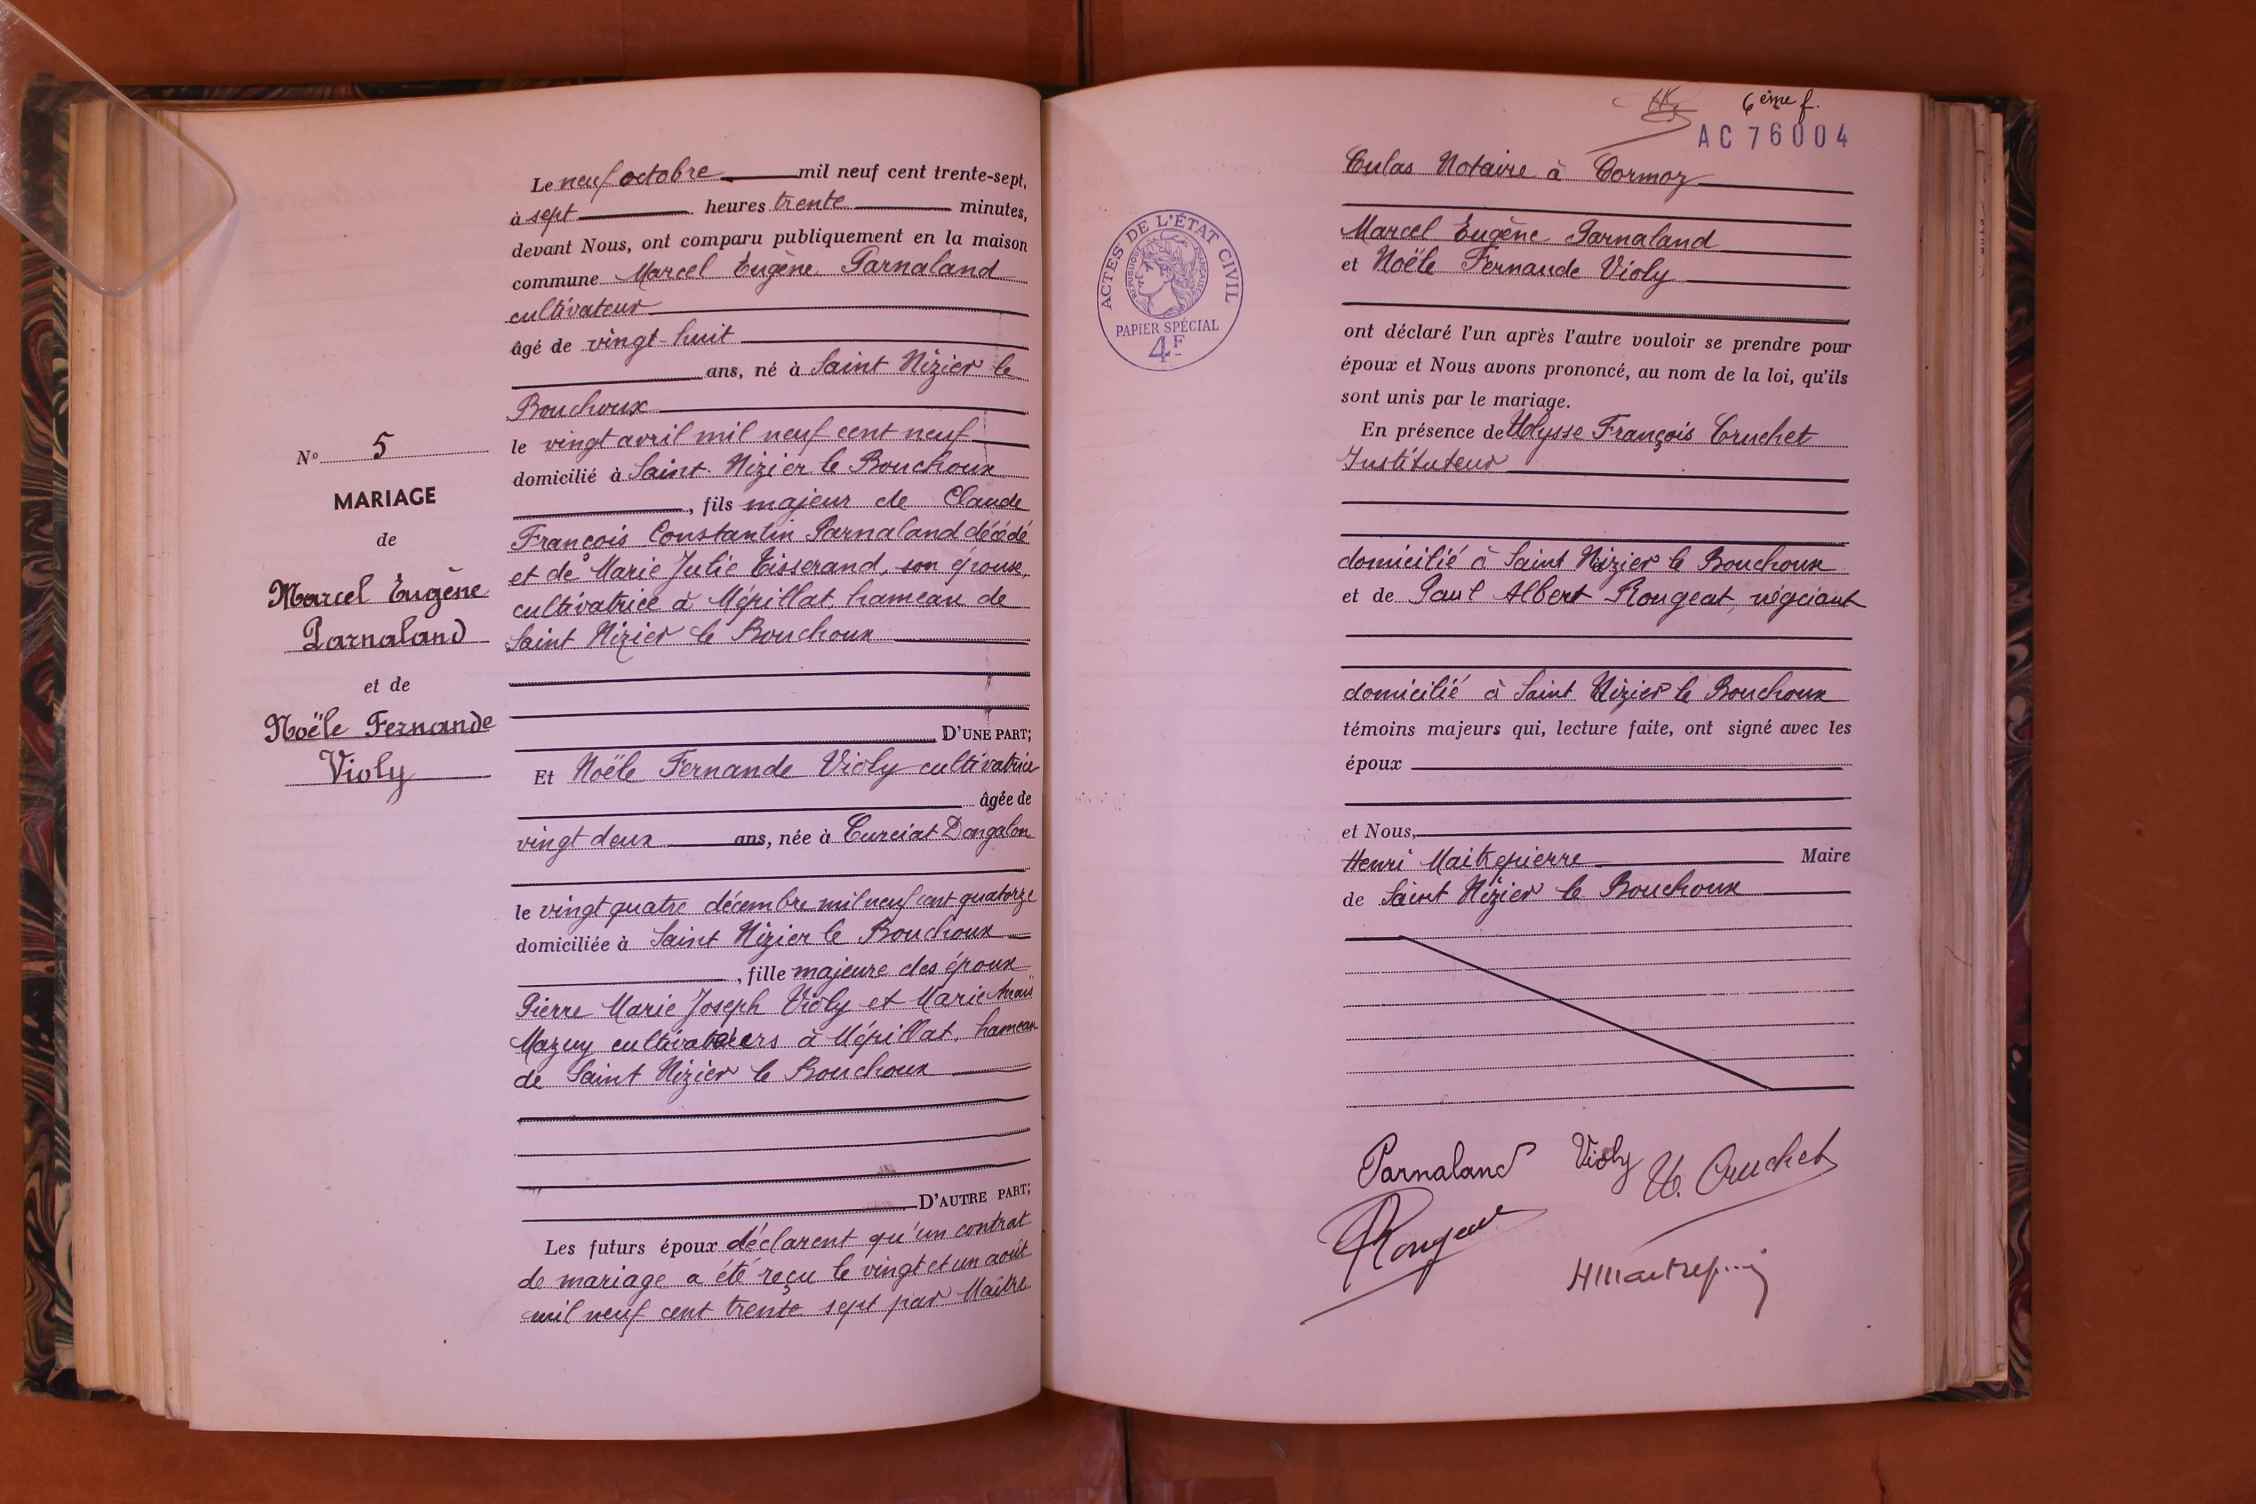 Nº 5
MARIAGE
de
Marcel Eugène
Parnaland
et de
Noële Fernande
Violy
Le neuf octobre mil neuf cent trente-sept,
à sept heures trente minutes,
devant Nous, ont comparu publiquement en la maison
commune Marcel Eugène Parnaland
cultivateur
âgé de vingt-huit
ans, né à Saint Nizier le
Bouchoux
le vingt avril mil neuf cent neuf
domicilié à Saint Nizier le Bouchoux
, fils majeur de Claude
François Constantin Parnaland décédé
et de Marie Julie Tisserand, son épouse,
cultivatrice à Mépillat, hameau de
Saint Nizier le Bouchoux
D'UNE PART;
Et Noële Fernande Violy cultivatrice
âgée de
vingt deux ans, née à Curciat Dongalon
le vingt quatre décembre mil neuf cent quatorze
domiciliée à Saint Nizier le Bouchoux
, fille majeure des époux
Pierre Marie Joseph Violy et Marie Anaïs
Mazuy cultivateurs à Mépillat, hameau
de Saint Nizier le Bouchoux
D'AUTRE PART;
Les futurs époux déclarent qu'un contrat
de mariage a été reçu le vingt et un août
mil neuf cent trente sept par Maître
6ème f.
AC 76004
ACTES DE L'ÉTAT CIVIL
RÉPUBLIQUE FRANÇAISE
PAPIER SPÉCIAL
4F
Culas Notaire à Cormoz
Marcel Eugène Parnaland
et Noële Fernande Violy
ont déclaré l'un après l'autre vouloir se prendre pour
époux et Nous avons prononcé, au nom de la loi, qu'ils
sont unis par le mariage.
En présence de Ulysse François Cruchet
Instituteur
domicilié à Saint Nizier le Bouchoux
et de Paul Albert Rougeat, négociant
domicilié à Saint Nizier le Bouchoux
témoins majeurs qui, lecture faite, ont signé avec les
époux
et Nous,
Henri Maitrepierre Maire
de Saint Nizier le Bouchoux
Parnaland Violy U. Cruchet
Rougeat
HMaitrepierre